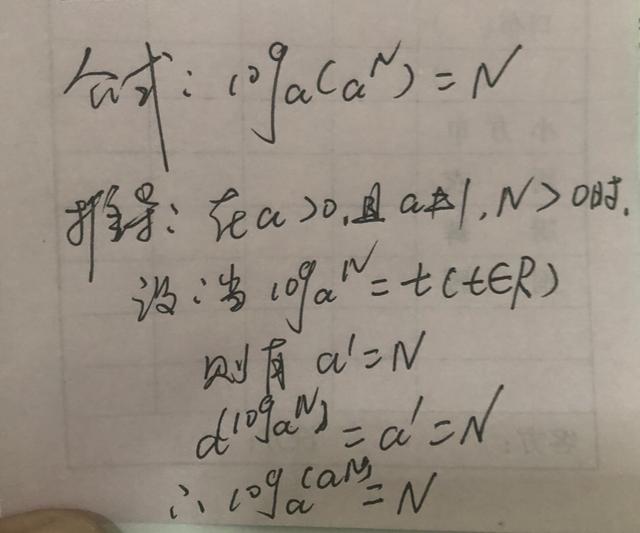 公式: log_a(a^N) = N
推导: 在a>0,且a≠1,N>0时.
设:当 log_a^N = t(t∈R)
则有 a' = N
a^(log_a^N) = a' = N
∴ log_a^(a^N) = N